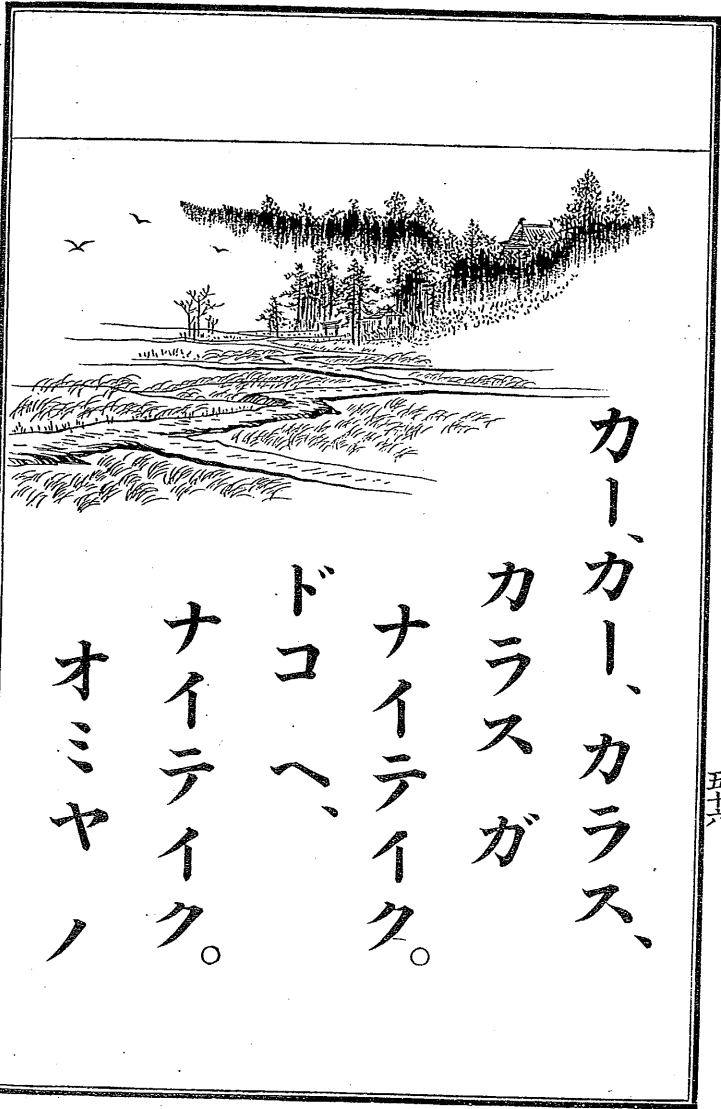 カー、カー、カラス、
カラス ガ
ナイテイク。
ドコ ヘ、
ナイテイク。
オミヤ ノ
五十六